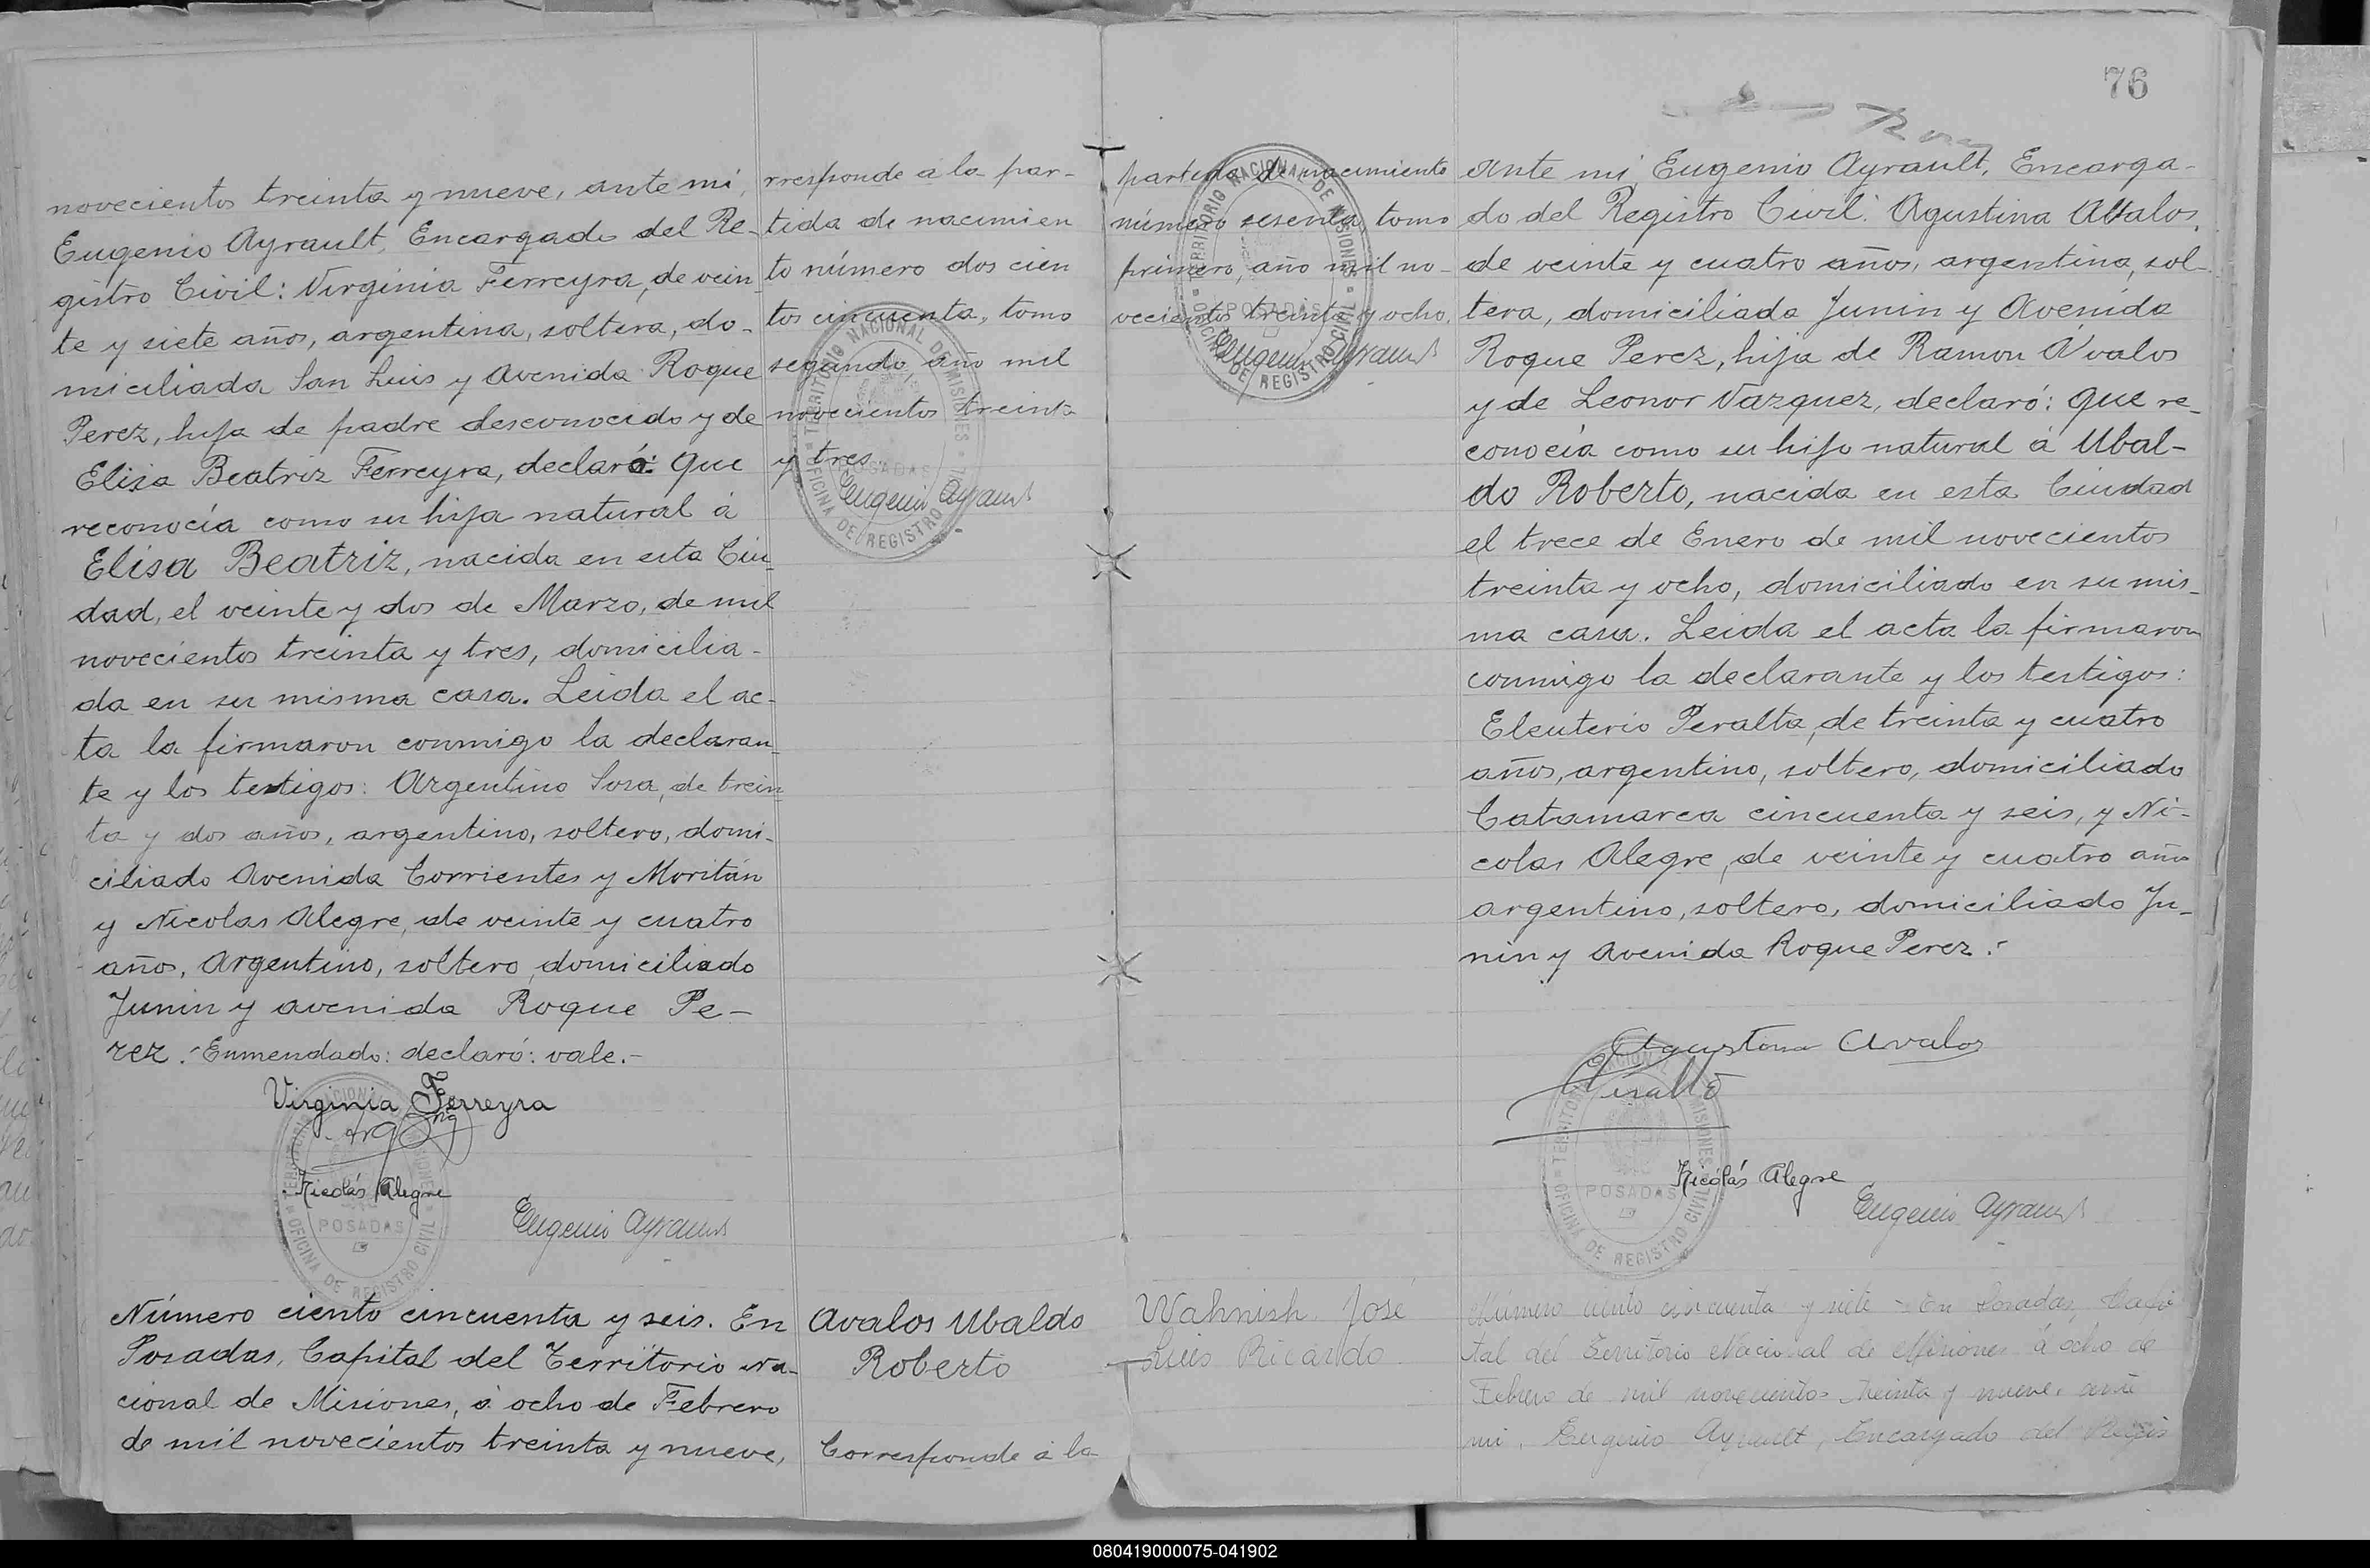 novecientos treinta y nueve, ante mi,
Eugenio Ayrault, Encargado del Re-
gistro Civil: Virginia Ferreyra, de vein
te y siete años, argentina, soltera, do-
miciliada San Luis y Avenida Roque
Perez, hija de padre desconocido y de
Elisa Beatriz Ferreyra, declaró: que
reconocía como su hija natural á
Elisa Beatriz, nacida en esta Ciu
dad, el veinte y dos de Marzo, de mil
novecientos treinta y tres, domicilia-
da en su misma casa. Leida el ac-
ta la firmaron conmigo la declaran
te y los testigos: Argentino Sosa, de trein
ta y dos años, argentino, soltero, domi-
ciliado Avenida Corrientes y Moritán
y Nicolas Alegre, de veinte y cuatro
años, Argentino, soltero, domiciliado
Junin y avenida Roque Pe-
rez.- Enmendado: declaró: vale.-
Virginia Ferreyra
Nicolás Alegre
Eugenio Ayrault
TERRITORIO NACIONAL DE MISIONES
POSADAS
OFICINA DE REGISTRO CIVIL
Número ciento cincuenta y seis. En
Posadas, Capital del Territorio Na-
cional de Misiones, á ocho de Febrero
de mil novecientos treinta y nueve,
rresponde á la par-
tida de nacimien
to número dos cien
tos cincuenta, tomo
segundo año mil
novecientos treinta
y tres.
Eugenio Ayrault
TERRITORIO NACIONAL DE MISIONES
POSADAS
OFICINA DE REGISTRO CIVIL
Avalos Ubaldo
Roberto
Corresponde á la
partida de nacimiento
número sesenta, tomo
primero, año mil no-
vecientos treinta y ocho.
Eugenio Ayrault
TERRITORIO NACIONAL DE MISIONES
POSADAS
OFICINA DE REGISTRO CIVIL
Wahnish José
Luis Ricardo
76
ante mi, Eugenio Ayrault, Encarga-
do del Registro Civil: Agustina Avalos,
de veinte y cuatro años, argentina, sol-
tera, domiciliada Junin y Avenida
Roque Perez, hija de Ramon Avalos
y de Leonor Vazquez, declaró: que re-
conocía como su hijo natural á Ubal-
do Roberto, nacida en esta Ciudad
el trece de Enero de mil novecientos
treinta y ocho, domiciliado en su mis-
ma casa. Leida el acta la firmaron
conmigo la declarante y los testigos:
Eleuterio Peralta, de treinta y cuatro
años, argentino, soltero, domiciliado
Catamarca cincuenta y seis, y Ni-
colas Alegre, de veinte y cuatro años
argentino, soltero, domiciliado Ju-
nin y Avenida Roque Perez.-
Agustina Avalos
Nicolás Alegre
Eugenio Ayrault
TERRITORIO NACIONAL DE MISIONES
POSADAS
OFICINA DE REGISTRO CIVIL
Número ciento cincuenta y siete - En Posadas, Capi
tal del Territorio Nacional de Misiones á ocho de
Febrero de mil novecientos treinta y nueve, ante
mi, Eugenio Ayrault, Encargado del Regis
080419000075-041902